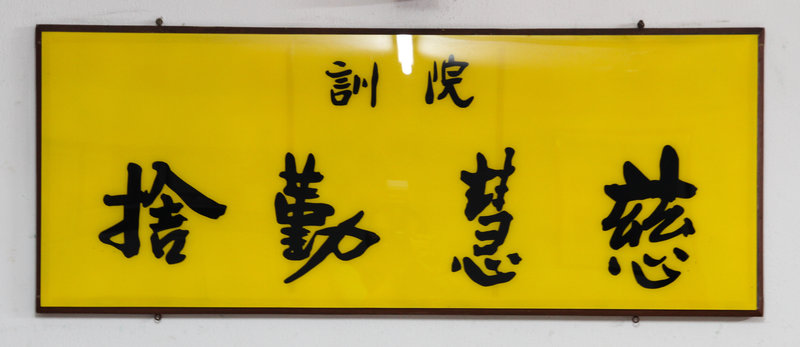 院訓
慈慧勤捨